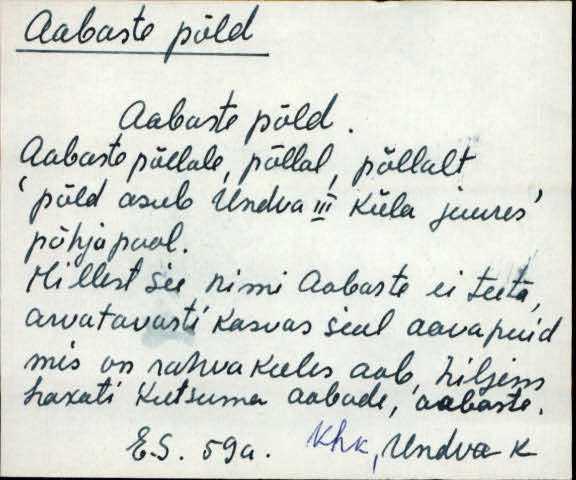 Aabaste põld
Aabaste põld.
Aabaste põllale, põllal, põllalt
'põld asub Undva III Küla juures'
põhja pool.
Millest see nimi Aabaste ei teeta,
arvatavasti kasvas seal aavapuid
mis on rahva keeles aab, hiljem
hakati kutsuma aabade, aabaste.
E.S. 59a. Khk, Undva k